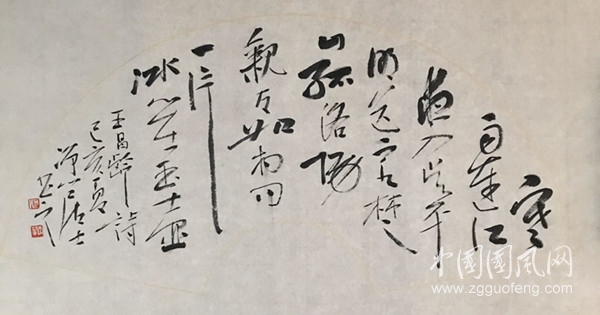 寒
雨連江
夜入吴平
明送客楚
山孤洛陽
親友如相问
一片
冰心在玉壶
王昌齡詩
己亥夏
居士
中国国风网
www.zgguofeng.com